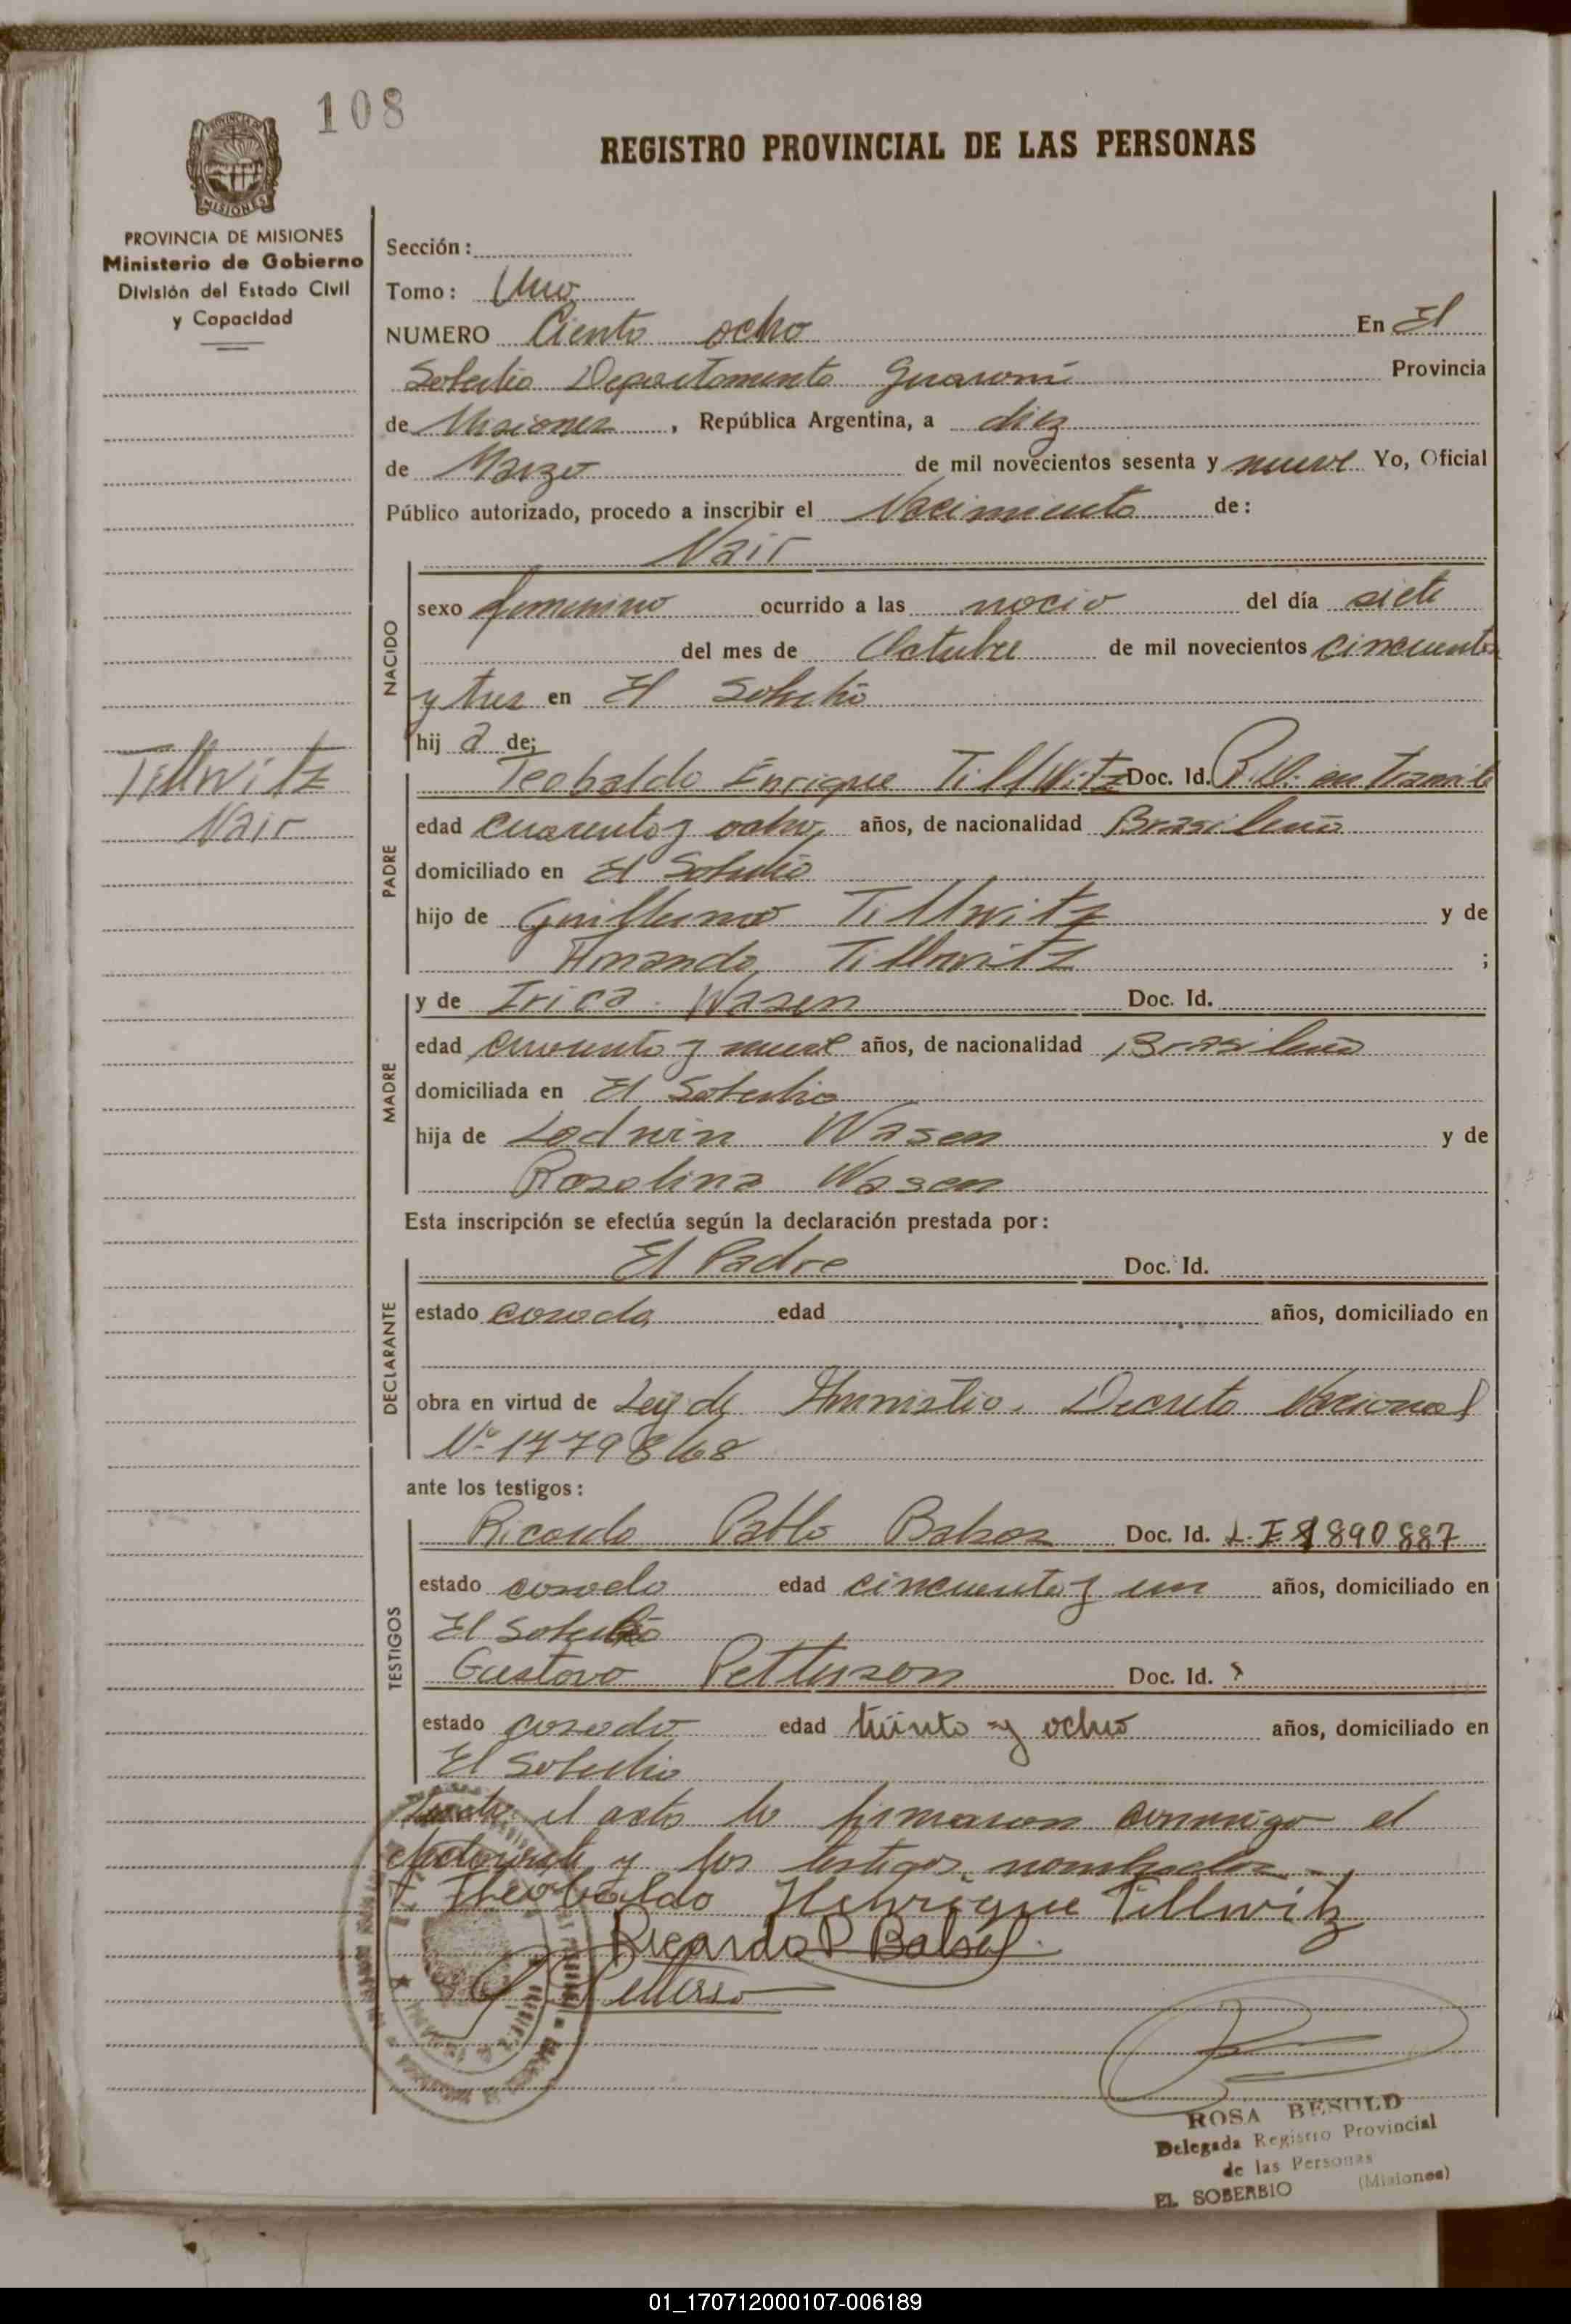 108
REGISTRO PROVINCIAL DE LAS PERSONAS
PROVINCIA DE
MISIONES
PROVINCIA DE MISIONES
Ministerio de Gobierno
División del Estado Civil
y Capacidad
Sección:
Tomo: Uno
NUMERO Ciento ocho En El
Soberbio Departamento Guaraní Provincia
de Misiones, República Argentina, a diez
de Marzo de mil novecientos sesenta y nueve Yo, Oficial
Público autorizado, procedo a inscribir el Nacimiento de:
Nair
NACIDO
sexo femenino ocurrido a las del día siete
del mes de Octubre de mil novecientos cincuenta
y tres en El Soberbio
hij a de;
Tillwitz
Nair
PADRE
Teobaldo Enrique Tillwitz Doc. Id. en tramite
edad cuarenta y ocho años, de nacionalidad Brasileña
domiciliado en El Soberbio
hijo de Guillermo Tillwitz y de
Amanda Tillwitz ;
MADRE
y de Irica Wasen Doc. Id.
edad cuarenta y nueve años, de nacionalidad Brasileña
domiciliada en El Soberbio
hija de Lodwin Wasen y de
Rosalina Wasen
Esta inscripción se efectúa según la declaración prestada por:
DECLARANTE
El Padre Doc. Id.
estado casado edad años, domiciliado en
obra en virtud de Ley de Amnistia. Decreto Nacional
Nº 17798/68
ante los testigos:
TESTIGOS
Ricardo Pablo Doc. Id. 890887
estado casado edad cincuenta y un años, domiciliado en
El Soberbio
Gustavo Petterson Doc. Id.
estado casado edad treinta y ocho años, domiciliado en
El Soberbio
el acto lo firmaron conmigo el
y los testigos nombrados
Theobaldo Henrique Tillwitz
Ricardo P
ROSA BESOLD
Delegada Registro Provincial
de las Personas
EL SOBERBIO (Misiones)
01_170712000107-006189